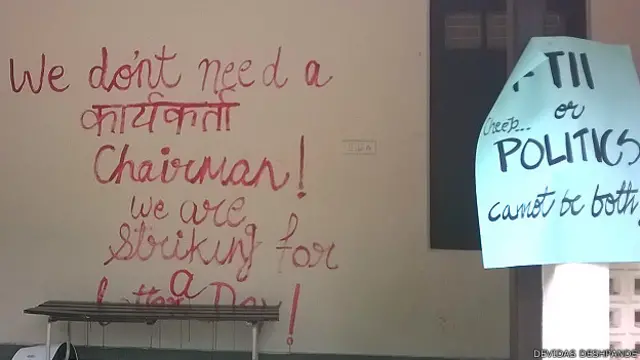 We don't need a
कार्यकर्ता
Chairman!
we are
striking for
a
Day!
FTII
or
Cheep...
POLITICS
cannot be both
DEVIDAS DESHPANDE